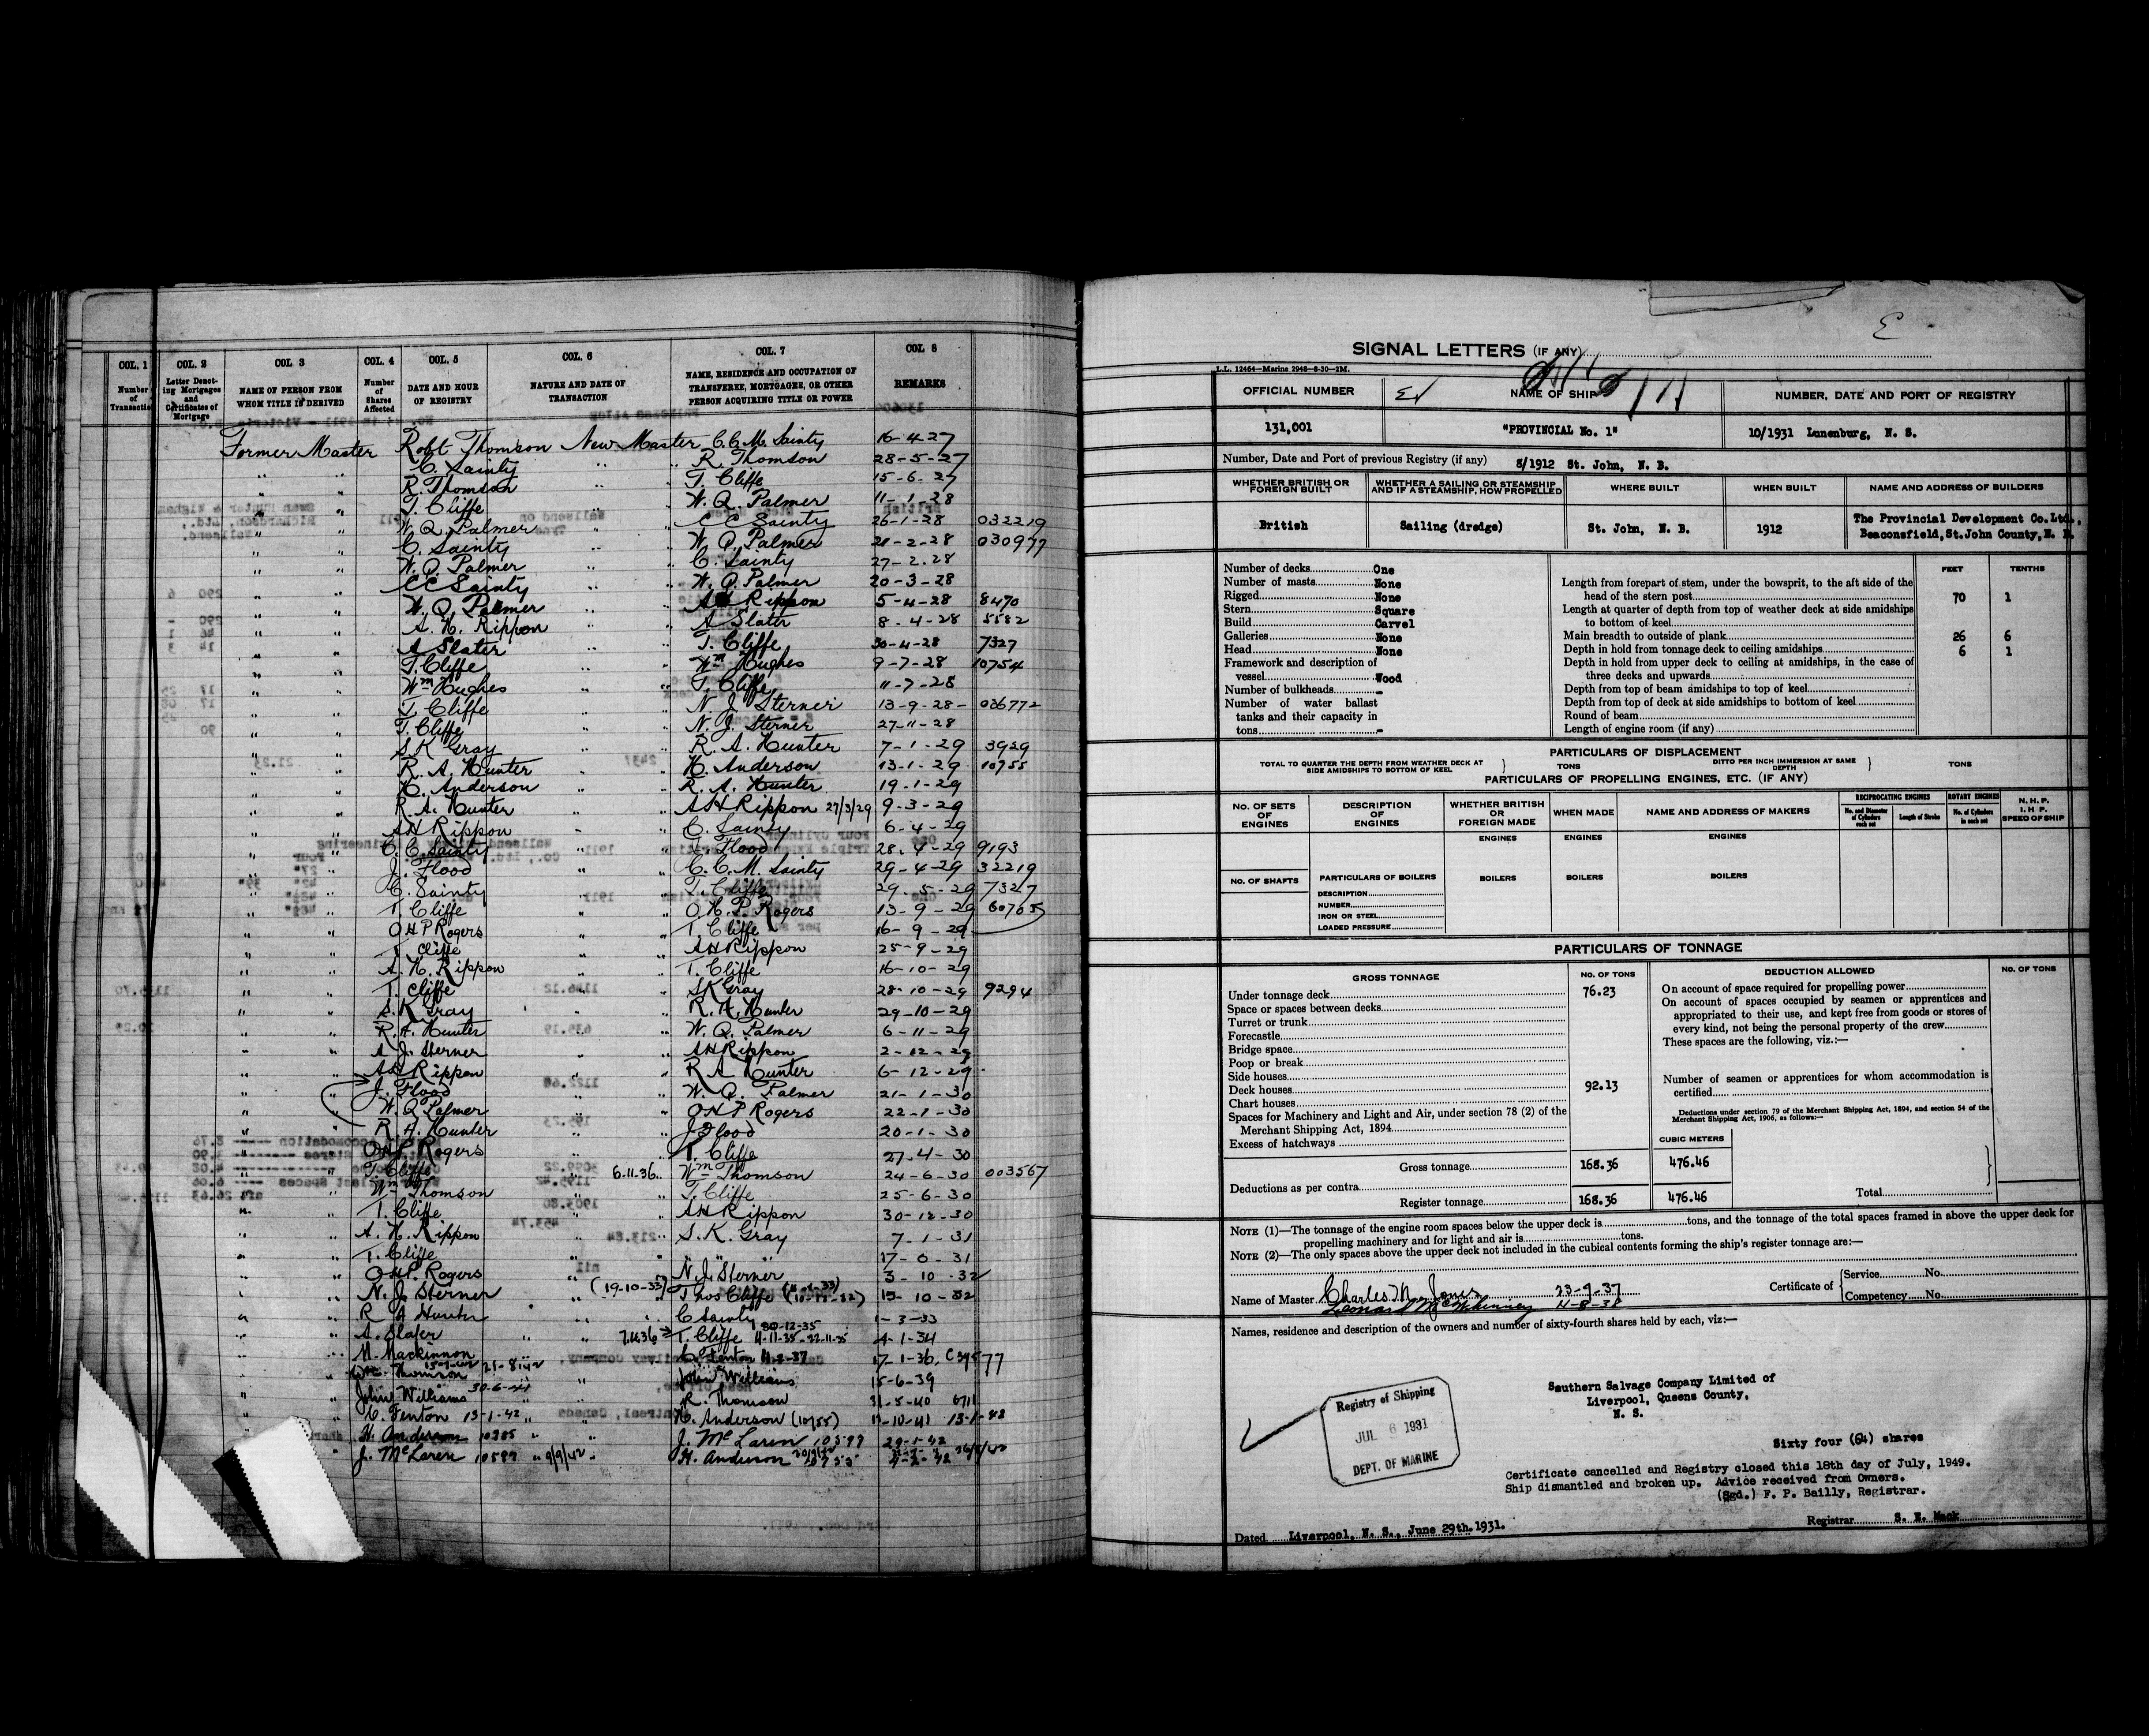 COL. 1 COL. 2 COL 3 COL. 4 COL. 5 COL. 6 COL. 7 COL 8
Number of Transaction
Letter Denoting Mortgages and Certificates of Mortgage
NAME OF PERSON FROM WHOM TITLE IS DERIVED
Number of Shares Affected
DATE AND HOUR OF REGISTRY
NATURE AND DATE OF TRANSACTION
NAME, RESIDENCE AND OCCUPATION OF TRANSFEREE, MORTGAGEE, OR OTHER PERSON ACQUIRING TITLE OR POWER
REMARKS
Former Master Robt Thomson New Master C. C. M. Sainty 16-4-27
" " C. Sainty " " R. Thomson 28-5-27
" " R. Thomson " T. Cliffe 15-6-27
" " T. Cliffe W. Q. Palmer 11-1-28
" " W. Q. Palmer " C C Sainty 26-1-28 032219
" " C. Sainty " W. Q. Palmer 21-2-28 030977
" " W. Q. Palmer " C. Sainty 27-2-28
" " C C Sainty " W. Q. Palmer 20-3-28
" " W. Q. Palmer " A H Rippon 5-4-28 8470
" " A. H. Rippon " A Slater 8-4-28 5582
" " A Slater " T. Cliffe 30-4-28 7327
" " T. Cliffe " Wm Hughes 9-7-28 10754
" " Wm Hughes " " T. Cliffe 11-7-28
" " T. Cliffe " N. J. Sterner 13-9-28- 036772
" " T. Cliffe " N. J. Sterner 27-11-28
" " S K Gray " " R. A. Hunter 7-1-29 3929
" " R. A. Hunter " H. Anderson 13-1-29 10755
" " H. Anderson " " R. A. Hunter 19-1-29
" " R. A. Hunter " " A H Rippon 27/3/29 9-3-29
" " A H Rippon " C. Sainty 6-4-29
" " C. C. Sainty J. Flood 28-4-29 9193
" " J. Flood " C. C. M. Sainty 29-4-29 32219
" " C. Sainty " T. Cliffe 29-5-29 7327
" " T. Cliffe " " O. H. P. Rogers 13-9-29 60765
" " O H P Rogers " T. Cliffe 16-9-29
" " T. Cliffe " " A H Rippon 25-9-29
" " A. H. Rippon " " T. Cliffe 16-10-29
" " T. Cliffe " S K Gray 28-10-29 9294
" " S. K Gray " " R. A. Hunter 29-10-29
" " R. A. Hunter " W. Q. Palmer 6-11-29
" " J. Sterner " " A H Rippon 2-12-29
" " A H Rippon " R A Hunter 6-12-29
" " J. Flood " W. Q. Palmer 21-1-30
" " W. Q Palmer " " O H P Rogers 22-1-30
" " R. A. Hunter " J Flood 20-1-30
" " O H P. Rogers " T. Cliffe 27-4-30
" " T. Cliffe 6.11.36 " Wm Thomson 24-6-30 003567
" " Wm Thomson " " T. Cliffe 25-6-30
" " T. Cliffe " A H Rippon 30-12-30
" " A. H. Rippon " S. K. Gray 7-1-31
" " T. Cliffe " " " " 31
" " O H P. Rogers " " N. J. Sterner 3-10-32
" " N. J. Sterner (19-10-33) Thos Cliffe 15-10-32
" " R A Hunter " " C Sainty 1-3-33
" " A. Slater " " 7.11.36 T. Cliffe 11-11-35 4-1-34
" " M. Mackinnon " " C. Fenton 17-1-36
" " Wm. Thomson " " John Williams 15-6-39
" " John Williams 30-6-41 " " R. Thomson 31-5-40 6711
" " C. Fenton 13-1-42 " " H. Anderson (10755) 13-1-42
" " H. Anderson " " J. McLaren 10597 29-1-42
" " J. McLaren 10597 " 9/9/42 " H. Anderson
E
SIGNAL LETTERS (IF ANY)
L.L. 12464—Marine 2948—8-30—2M.
OFFICIAL NUMBER NAME OF SHIP NUMBER, DATE AND PORT OF REGISTRY
131,001 "PROVINCIAL No. 1" 10/1931 Lunenburg, N. S.
Number, Date and Port of previous Registry (if any) 8/1912 St. John, N. B.
WHETHER BRITISH OR FOREIGN BUILT
WHETHER A SAILING OR STEAMSHIP AND IF A STEAMSHIP, HOW PROPELLED
WHERE BUILT WHEN BUILT NAME AND ADDRESS OF BUILDERS
British Sailing (dredge) St. John, N. B. 1912 The Provincial Development Co.Ltd.,
Beaconsfield,St.John County,N. B.
Number of decks One
Number of masts None
Rigged None
Stern Square
Build Carvel
Galleries None
Head None
Framework and description of
vessel Wood
Number of bulkheads -
Number of water ballast
tanks and their capacity in
tons -
FEET TENTHS
Length from forepart of stem, under the bowsprit, to the aft side of the
head of the stern post 70 1
Length at quarter of depth from top of weather deck at side amidships
to bottom of keel
Main breadth to outside of plank 26 6
Depth in hold from tonnage deck to ceiling amidships 6 1
Depth in hold from upper deck to ceiling at amidships, in the case of
three decks and upwards
Depth from top of beam amidships to top of keel
Depth from top of deck at side amidships to bottom of keel
Round of beam
Length of engine room (if any)
PARTICULARS OF DISPLACEMENT
TOTAL TO QUARTER THE DEPTH FROM WEATHER DECK AT SIDE AMIDSHIPS TO BOTTOM OF KEEL } TONS DITTO PER INCH IMMERSION AT SAME DEPTH } TONS
PARTICULARS OF PROPELLING ENGINES, ETC. (IF ANY)
NO. OF SETS OF ENGINES
DESCRIPTION OF ENGINES
WHETHER BRITISH OR FOREIGN MADE
WHEN MADE
NAME AND ADDRESS OF MAKERS
RECIPROCATING ENGINES
No. and Diameter of Cylinders each set
Length of Stroke
ROTARY ENGINES
No. of Cylinders in each set
N. H. P.
I. H. P.
SPEED OF SHIP
ENGINES ENGINES ENGINES
NO. OF SHAFTS PARTICULARS OF BOILERS BOILERS BOILERS BOILERS
DESCRIPTION
NUMBER
IRON OR STEEL
LOADED PRESSURE
PARTICULARS OF TONNAGE
GROSS TONNAGE NO. OF TONS DEDUCTION ALLOWED NO. OF TONS
Under tonnage deck 76.23
Space or spaces between decks
Turret or trunk
Forecastle
Bridge space
Poop or break
Side houses
Deck houses 92.13
Chart houses
Spaces for Machinery and Light and Air, under section 78 (2) of the
Merchant Shipping Act, 1894
Excess of hatchways
Gross tonnage 168.36 476.46
Deductions as per contra
Register tonnage 168.36 476.46
CUBIC METERS
On account of space required for propelling power
On account of spaces occupied by seamen or apprentices and
appropriated to their use, and kept free from goods or stores of
every kind, not being the personal property of the crew
These spaces are the following, viz.:—
Number of seamen or apprentices for whom accommodation is
certified
Deductions under section 79 of the Merchant Shipping Act, 1894, and section 54 of the
Merchant Shipping Act, 1906, as follows:—
Total
NOTE (1)—The tonnage of the engine room spaces below the upper deck is tons, and the tonnage of the total spaces framed in above the upper deck for
propelling machinery and for light and air is tons.
NOTE (2)—The only spaces above the upper deck not included in the cubical contents forming the ship's register tonnage are:—
Name of Master Charles N. Jones 23-9-37 Certificate of { Service No.
Leonard McWhinney 4-8-38 Competency No.
Names, residence and description of the owners and number of sixty-fourth shares held by each, viz:—
Southern Salvage Company Limited of
Liverpool, Queens County,
N. S.
Registry of Shipping
JUL 6 1931
DEPT. OF MARINE
Sixty four (64) shares
Certificate cancelled and Registry closed this 18th day of July, 1949.
Ship dismantled and broken up. Advice received from Owners.
(Sgd.) F. P. Bailly, Registrar.
Dated Liverpool, N. S., June 29th.1931. Registrar S. E. Mack